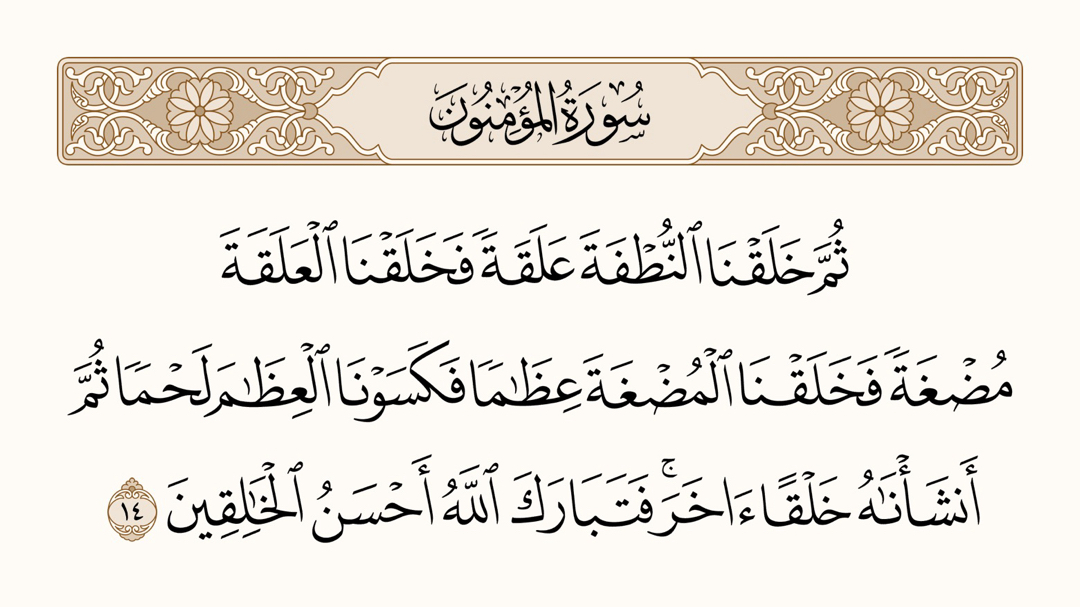 سُورَةُ المُؤۡمِنُونَ
ثُمَّ خَلَقۡنَا ٱلنُّطۡفَةَ عَلَقَةٗ فَخَلَقۡنَا ٱلۡعَلَقَةَ
مُضۡغَةٗ فَخَلَقۡنَا ٱلۡمُضۡغَةَ عِظَٰمٗا فَكَسَوۡنَا ٱلۡعِظَٰمَ لَحۡمٗا ثُمَّ
أَنشَأۡنَٰهُ خَلۡقًا ءَاخَرَۚ فَتَبَارَكَ ٱللَّهُ أَحۡسَنُ ٱلۡخَٰلِقِينَ ١٤